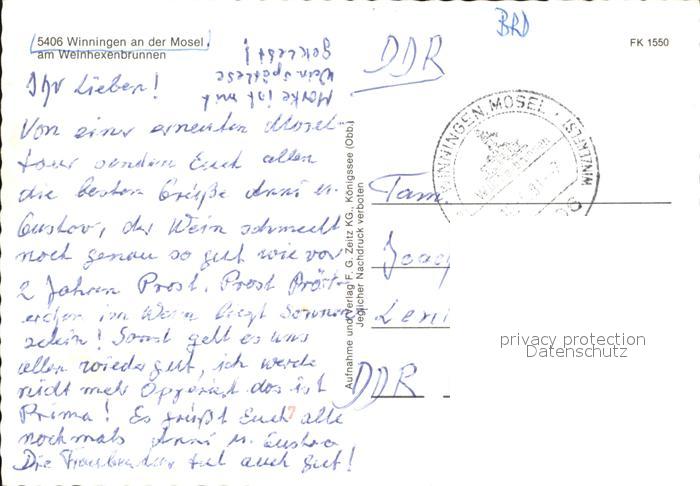 5406 Winningen an der Mosel
am Weinhexenbrunnen
BRD
FK 1550
DDR
Marke ist mit
Wein Spätlese
geklebt!
Ihr Lieben!
Von einer erneuten Mosel-
tour senden Euch allen
die besten Grüße Anni u.
Gustav, der Wein schmeckt
noch genau so gut wie vor
2 Jahren Prost. Prost Pröst-
erchen im Wein liegt Sonnen
schein! Sonst geht es uns
allen wieder gut, ich werde
nicht mehr das ist
Prima! Es grüßt Euch alle
nochmals Anni u. Gustav
Die tut auch gut!
Aufnahme und Verlag F. G. Zeitz KG., Königssee (Obb.)
Jeglicher Nachdruck verboten
WINNINGEN, MOSEL
Tam
Joac
Leni
DDR
privacy protection
Datenschutz